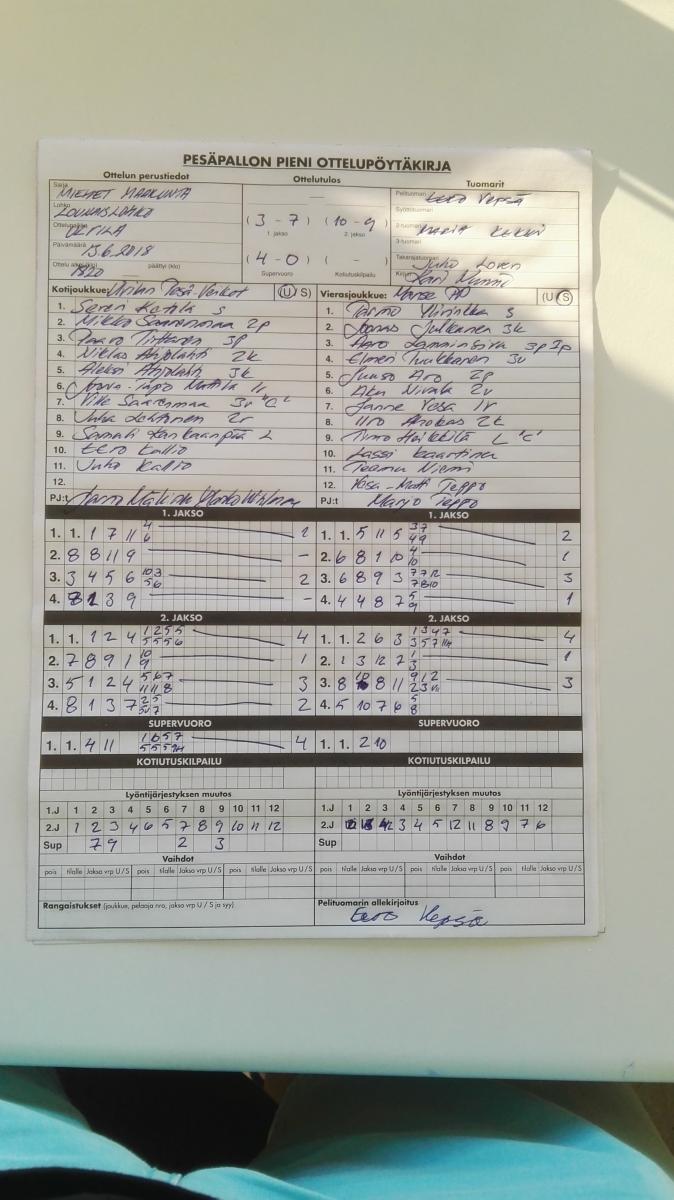 PESÄPALLON PIENI OTTELUPÖYTÄKIRJA
Ottelun perustiedot
Ottelutulos
Tuomarit
Sarja
MIEHET MAAKUNTA
Lohko
LOUNAISLOHKO
Päivämäärä
15.6.2018
päättyi (klo)
1820
( 3 - 7 ) ( 10 - 9 )
1. jakso 2. jakso
( 4 - 0 ) ( - )
Supervuoro Kotiutuskilpailu
Pelituomari
Eero Vepsä
Syöttötuomari
2-tuomari
3-tuomari
Takarajatuomari
Juho Loren
Kirjuri
Kari Nummi
Kotijoukkue: Ulvilan Pesä-Veikot (U/ S)
1. Severi Ketola S
2. Mikko Saarenmaa 2p
3. Paavo Tirttonen 3p
4. Niklas Ahplahti 2k
5. Aleksi Ahplahti 3k
6. Mattila 1v
7. Ville Saarenmaa 3v "C"
8. Juha Lehtonen 2v
9. Samuli Kankaanpää L
10. Eero Kallio
11. Juho Kallio
12.
PJ:t Jarno
Vierasjoukkue: Manse PP (U/ S)
1. Tarmo Ylirinkka S
2. Joonas Julkunen 3k
3. Aaro Lamminsivu 3p 2p
4. Elmeri Tuukkanen 3v
5. Juuso Aro 2p
6. Aku Nivala 2v
7. Janne Vesa 1v
8. Iiro Ahokas 2k
9. Timo Heikkilä L "C"
10. Lassi Kaartinen
11. Teemu Niemi
12. Vesa-Matti Teppo
PJ:t Marjo Teppo
1. JAKSO
1. 1. 1 7 11 4 6 1
2. 8 8 11 9 -
3. 3 4 5 6 10 3 5 6 2
4. 8 1 3 9 -
1. JAKSO
1. 1. 5 11 5 3 7 4 9 2
2. 6 8 1 10 4 10 1
3. 6 8 9 3 7 7 12 7 8 10 3
4. 4 4 8 7 5 9 1
2. JAKSO
1. 1. 1 2 4 1 2 5 5 5 5 5 6 4
2. 7 8 9 1 10 9 1
3. 5 1 2 4 5 6 7 11 11 8 3
4. 8 1 3 7 2 5 2
2. JAKSO
1. 1. 2 6 3 1 3 4 7 3 5 7 4
2. 1 3 12 2 1 3 1
3. 8 10 8 11 9 1 2 3
4. 5 10 7 6 5 8
SUPERVUORO
1. 1. 4 11 4
SUPERVUORO
1. 1. 2 10
KOTIUTUSKILPAILU
KOTIUTUSKILPAILU
Lyöntijärjestyksen muutos
1.J 1 2 3 4 5 6 7 8 9 10 11 12
2.J 1 2 3 4 6 5 7 8 9 10 11 12
Sup 7 9 2 3
Lyöntijärjestyksen muutos
1.J 1 2 3 4 5 6 7 8 9 10 11 12
2.J 3 4 5 12 11 8 9 7 6
Sup
Vaihdot
pois tilalle Jakso vrp U/S pois tilalle Jakso vrp U/S pois tilalle Jakso vrp U/S
Vaihdot
pois tilalle Jakso vrp U/S pois tilalle Jakso vrp U/S pois tilalle Jakso vrp U/S
Rangaistukset (joukkue, pelaaja nro, jakso vrp U / S ja syy)
Pelituomarin allekirjoitus
Eero Vepsä